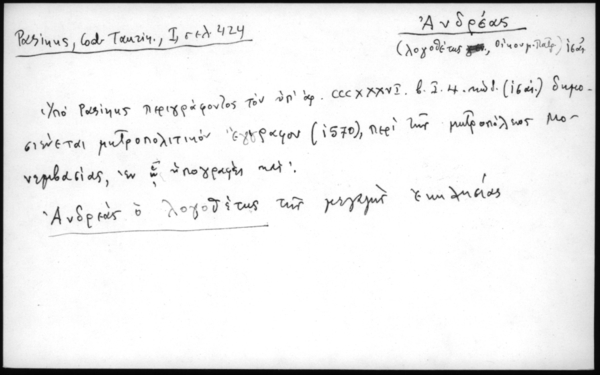 Pasinus, Cod. Taurin., I, σελ 424
Ἀνδρέας
(λογοθέτης Οἰκουμ. Πατρ.) ις΄
Ὑπό Pasinus περιγράφοντος τόν ὑπ' ἀρ. CCCXXXVI. b. I. 4. κώδ. (ις΄ αἰ.) δημο-
σιεύεται μητροπολιτικόν ἔγγραφον (1570), περί τῆς μητροπόλεως Μο-
νεμβασίας, ἐν ᾧ ὑπογραφές καί:
Ἀνδρέας ὁ λογοθέτης τῆς μεγάλης ἐκκλησίας